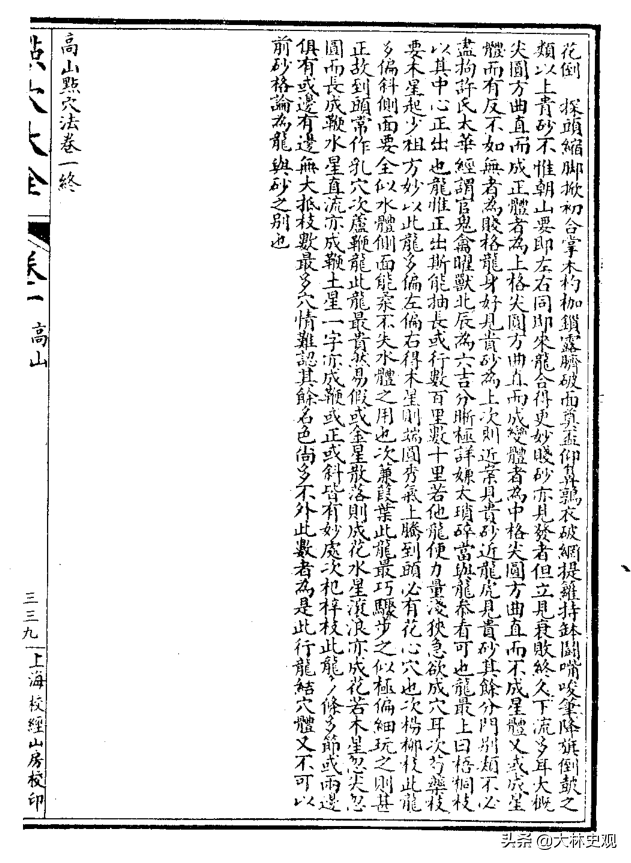 花倒　探頭縮脚掀初合掌木杓枷鎖露臍破面奠盃仰箕鶉衣破網提籮持鉢鬪嘴唆筆降旗倒鼓之
類以上貴砂不惟朝山要即左右同即來龍合得更妙賤砂亦見發者但立見衰敗終久下流多耳大概
尖圓方曲直而成正體者為上格尖圓方曲直而成變體者為中格尖圓方曲直而不成星體又或成星
體而有反不如無者為賤格龍身好見貴砂為上次則近案見貴砂近龍虎見貴砂其餘分門別類不必
盡拘許氏太華經謂官鬼禽曜獸北辰為六吉分晰極詳嫌太瑣碎當與龍叅看可也龍最上曰梧桐枝
以其中心正出也龍惟正出斯能抽長或行數百里數十里若他龍便力量淺狹急欲成穴耳次芍藥枝
要木星起少祖方妙以此龍多偏左偏右得木星則端圓秀氣上騰到頭必有花心穴也次楊柳枝此龍
多偏斜側面要全似水體側面能柔不失水體之用也次蒹葭葉此龍最巧驟步之似極偏細玩之則甚
正故到頭常作乳穴次蘆鞭龍此龍最貴然易假或金星散落則成花水星滾浪亦成花若木星忽尖忽
圓而長成鞭水星直流亦成鞭土星一字亦成鞭或正或斜皆有妙處次杞梓枝此龍〻條多節或兩邊
俱有或邊有邊無大抵枝數最多穴情難認其餘名色尚多不外此數者為是此行龍結穴體又不可以
前砂格論為龍與砂之别也
高山點穴法卷一終
點穴大全
卷一　高山
三三九
上海校經山房校印
头条@大林史观